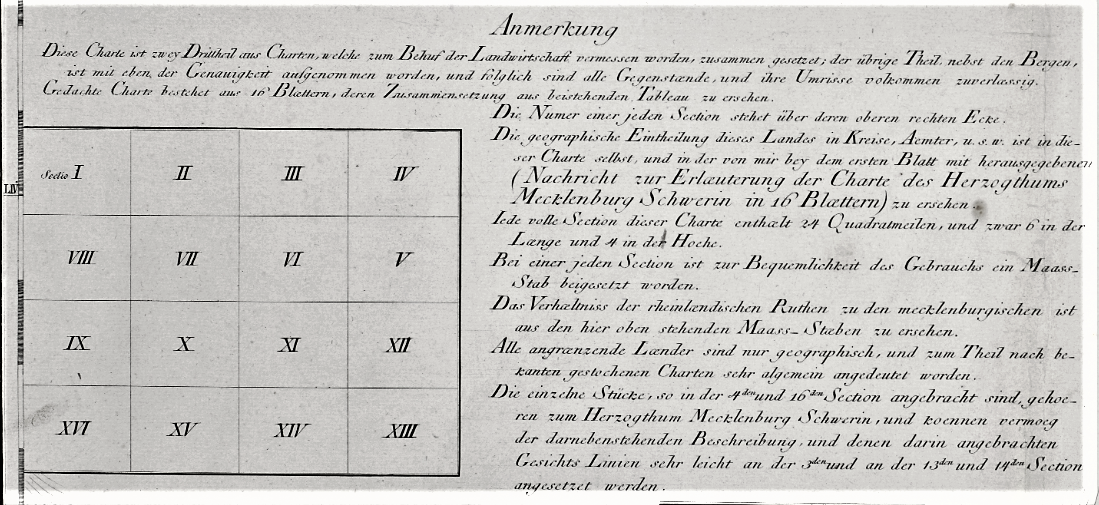 Anmerkung
Diese Charte ist zwey Drittheil aus Charten, welche zum Behuf der Landwirtschaft vermessen worden, zusammen gesetzt; der übrige Theil nebst den Bergen,
ist mit eben der Genauigkeit aufgenommen worden, und folglich sind alle Gegenstænde, und ihre Umrisse volkommen zuverlæssig.
Gedachte Charte bestehet aus 16 Blættern, deren Zusammensetzung aus beistehenden Tableau zu ersehen.
Die Numer einer jeden Section stehet über deren oberen rechten Ecke.
Die geographische Eintheilung dieses Landes in Kreise, Aemter, u.s.w. ist in die-
ser Charte selbst, und in der von mir bey dem ersten Blatt mit herausgegebenen
(Nachricht zur Erlæuterung der Charte des Herzogthums
Mecklenburg Schwerin in 16 Blættern) zu ersehen.
Iede volle Section dieser Charte enthælt 24 Quadratmeilen, und zwar 6 in der
Længe und 4 in der Hoehe.
Bei einer jeden Section ist zur Bequemlichkeit des Gebrauchs ein Maass-
Stab beigesetzt worden.
Das Verhæltniss der rheinlændischen Ruthen zu den mecklenburgischen ist
aus den hier oben stehenden Maass-Stæben zu ersehen.
Alle angrænzende Lænder sind nur geographisch, und zum Theil nach be-
kanten gestochenen Charten sehr algemein angedeutet worden.
Die einzelne Stücke, so in der 4den und 16den Section angebracht sind, gehoe-
ren zum Herzogthum Mecklenburg Schwerin, und koennen vermoeg
der darnebenstehenden Beschreibung, und denen darin angebrachten
Gesichts Linien sehr leicht an der 3den und an der 13den und 14den Section
angesetzt werden.
Sectio I II III IV
VIII VII VI V
IX X XI XII
XVI XV XIV XIII